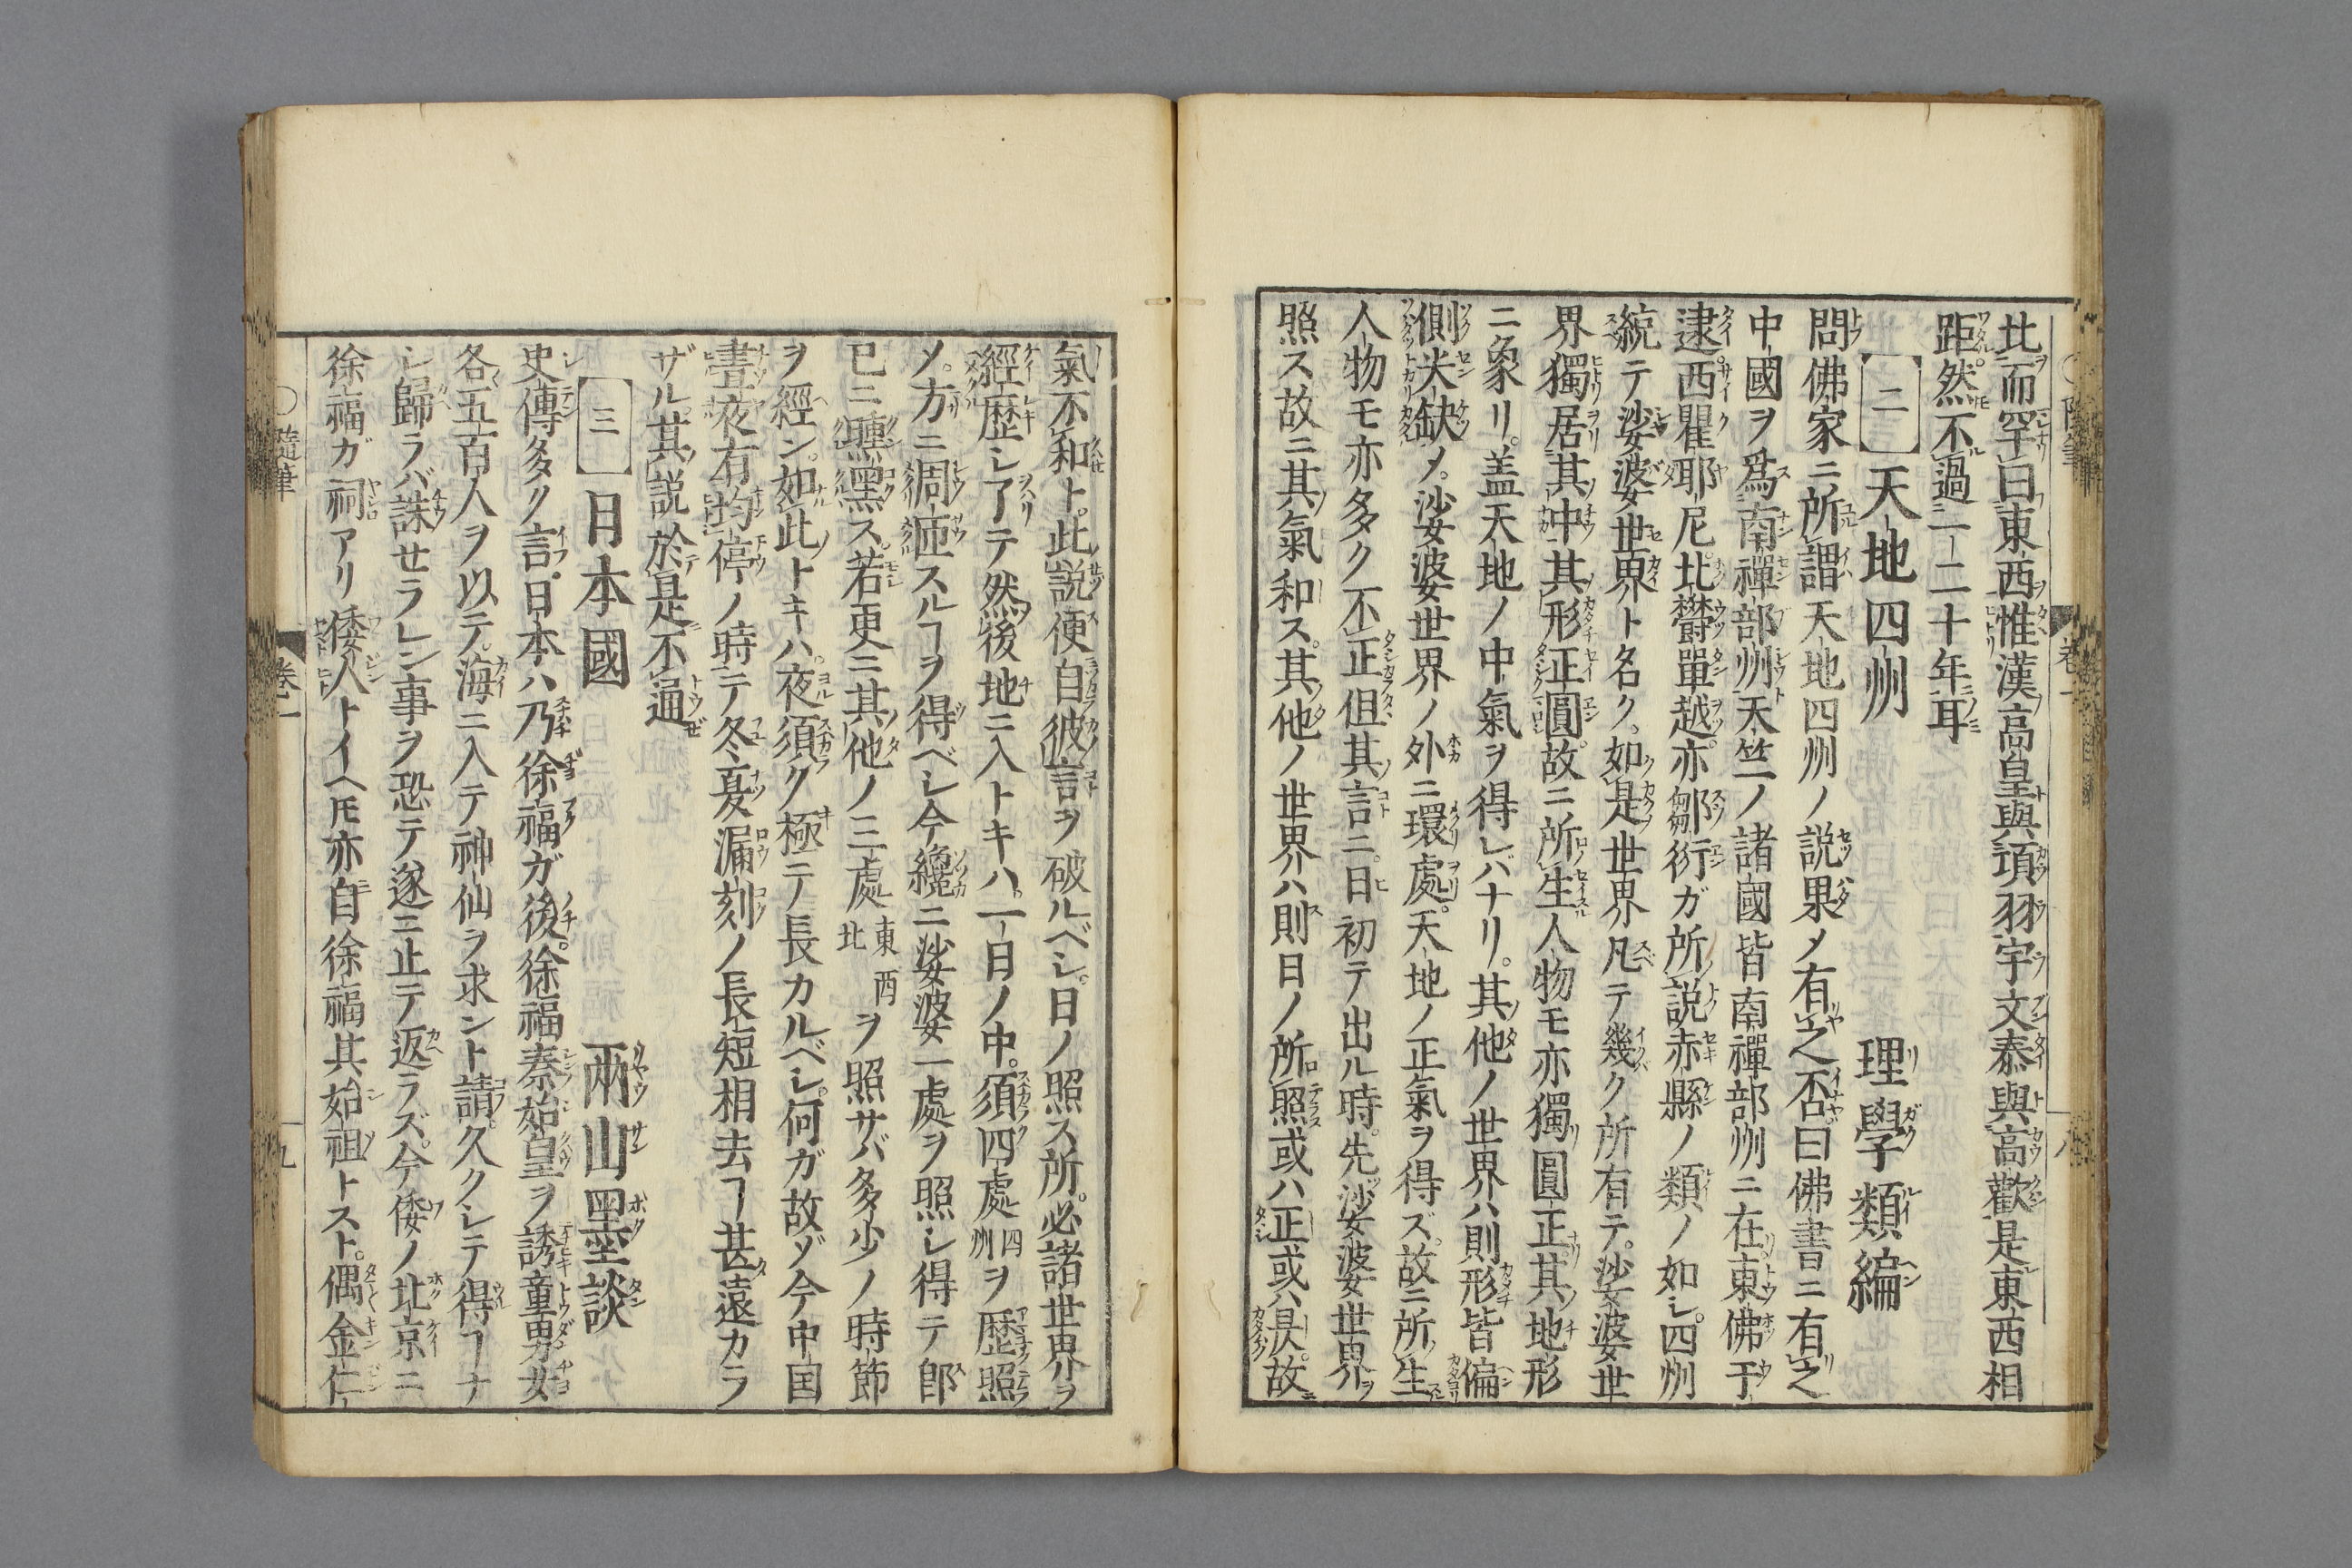 北而罕曰東西惟漢高皇與項羽宇文泰與高歡是東西相
距然不過一二十年耳
二 天地四州 理學類編
問佛家ニ所謂天地四州ノ説果メ有之否曰佛書ニ有之
中國ヲ爲南禪部州天竺ノ諸國皆南禪部州ニ在東佛于
逮西瞿耶尼北欝單越亦鄒衍ガ所説赤縣ノ類ノ如シ四州
統テ娑婆世界ト名ク如是世界凡テ幾ク所有テ娑婆世
界獨居其中其形正圓故ニ所生人物モ亦獨圓正其地形
ニ象リ盖天地ノ中氣ヲ得レバナリ其他ノ世界ハ則形皆偏
側尖缺メ沙婆世界ノ外ニ環處天地ノ正氣ヲ得ズ故ニ所生
人物モ亦多ク不正但其言ニ日初テ出ル時先沙婆世界ヲ
照ス故ニ其氣和ス其他ノ世界ハ則日ノ所照或ハ正或ハ昃故
氣不和ト此説便自彼言ヲ破ルベシ日ノ照ス所必諸世界ヲ
經歴シ了テ然後地ニ入トキハ一日ノ中須四處四州ヲ歴照
メ方ニ周匝スルヿヲ得ベシ今纔ニ娑婆一處ヲ照シ得テ即
已ニ曛黑ス若更ニ其他ノ三處東西北ヲ照サバ多少ノ時節
ヲ經ン如此トキハ夜須ク極ニテ長カルベシ何ガ故ゾ今中国
晝夜有均停ノ時テ冬夏漏刻ノ長短相去ヿ甚遠カラ
ザル其説於是不通
三 日本國 兩山墨談
史傳多ク言日本ハ乃徐福ガ後徐福秦始皇ヲ誘童男女
各五百人ヲ以テ海ニ入テ神仙ヲ求ント請久クシテ得ヿナ
シ歸ラバ誅セラレン事ヲ恐テ遂ニ止テ返ラズ今倭ノ北京ニ
徐福ガ祠アリ倭人トイヘ𪜈亦自徐福其始祖トスト偶金仁
隨筆 卷一 八
隨筆 卷一 九